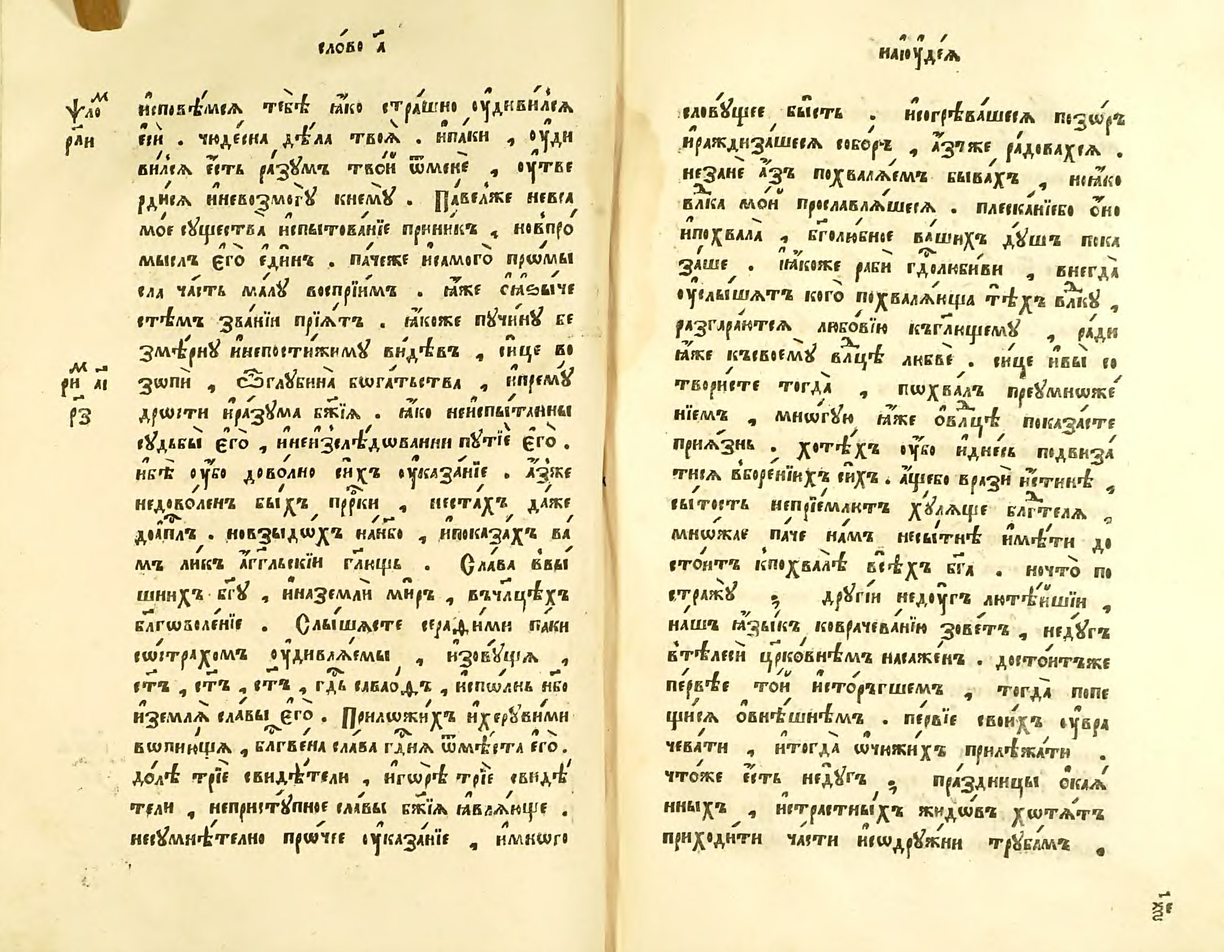 сло́во а҃
ѱло м
рли
и҆сповѣ́мсѧ тебѣ̀ ꙗ҆́ко стра́шно ᲂу҆диви́лсѧ
є҆сѝ . чюде́сна дѣ́ла твоѧ̀ . и҆па́ки , ᲂу҆ди
ви́лсѧ є҆́сть ра́зумъ тво́й ѿменѐ , ᲂу҆тве
рди́сѧ и҆невозмогꙋ̀ кнемꙋ̀ . Па́велже невса
мое сꙋщества̀ и҆спытова́нїе прини́къ , новпро
мы́слъ є҆гѡ̀ є҆ди́нъ . па́чеже и҆самого̀ прѡмы
сла ча́сть ма́лꙋ воспрїи́мъ . ꙗ҆́же
стѣ́мъ зва́нїи прїѧ́тъ . ꙗ҆́коже пꙋчи́нꙋ бе
змѣ́рнꙋ и҆непостижи́мꙋ ви́дѣвъ , си́це во
м
ри аі
рз
зопѝ , ѽглꙋбина̀ бѡга́тьства , и҆премꙋ́
дрѡсти и҆ра́зума бж҃їѧ . ꙗ҆́ко неи҆спы́танны
сꙋдьбы̀ є҆гѡ̀ , и҆неи҆зслѣ́дѡванни пꙋтїѐ є҆гѡ̀ .
и҆бѣ̀ ᲂу҆́бо дово́лно си́хъ ᲂу҆каза́нїе . а҆́зже
недово́ленъ бы́хъ прⷪ҇рки , неста́хъ да́же
доа҆пⷭ҇лъ . новзыдо́хъ нан҃бо , и҆показа́хъ ва́
мъ ли́къ а҆́гг҃льскїи гл҃ющь . Сла́ва ввы́
шнихъ бг҃ꙋ , и҆наземлѝ ми́ръ , въчл҃цѣхъ
бл҃гѡволе́нїе . Слы́шѧсте серафи́ми па́ки
сѡстра́хомъ ᲂу҆дивлѧ́емы , и҆зовꙋ́щѧ ,
ст҃ъ , ст҃ъ , ст҃ъ , гд҇ь саваѡ́ѳъ , и҆спо́лнь нб҃о
и҆землѧ̀ сла́вы є҆гѡ̀ . Прилѡжи́хъ и҆херꙋви́ми
вѡпию́щѧ , благⷭ҇ве́на сла́ва гдⷭ҇нѧ ѿмѣ́ста є҆гѡ̀ .
до́лѣ трїѐ свидѣ́тели , и҆гѡрѣ̀ трїѐ свидѣ́
тели , непристꙋ́пное сла́вы бж҃їѧ ꙗ҆влѧ́юще .
несꙋмнѣ́телно прѡ́чее ᲂу҆каза́нїе , и҆мнѡго
наїꙋде́ѧ
словꙋ́щее бы́сть . и҆согрѣва́шесѧ позѡ́ръ
и҆раждиза́шесѧ собо́ръ , а҆́зъже ра́довахсѧ .
незанѐ а҆́зъ похвалѧ́емъ быва́хъ , ноꙗ҆́ко
влⷣка мо́й прославлѧ́шесѧ . плеска́нїебо ѻ҆́но
и҆похвала̀ , бг҃олю́бное ва́шихъ дꙋ́шъ пока
за́ше . ꙗ҆́коже рабѝ гдⷭ҇олюби́ви , внегда̀
ᲂу҆слы́шѧтъ кого̀ похвалѧ́юща тѣ́хъ влⷣкꙋ ,
разгара́ютсѧ любо́вїю къгл҃ющемꙋ , ра́ди
ꙗ҆́же късвоемꙋ̀ влⷣцѣ любвѐ . си́це и҆вы̀ со
твори́сте тогда̀ , пѡхва́лъ преꙋмнѡже́
нїемъ , мнѡ́гꙋю ꙗ҆́же ѻ҆влⷣцѣ показа́сте
прїѧ́знь . хотѣ́хъ ᲂу҆́бо и҆дне́сь подвиза́
тисѧ вборе́нїихъ си́хъ . а҆́щебо врази̇̀ и҆́стинѣ ,
сы́тость непрїе́млютъ хꙋ́лѧще благⷣтелѧ ,
мнѡ́жае па́че на́мъ несы́тнѣ и҆мѣ́ти до
сто́итъ кпохвалѣ̀ всѣ́хъ бг҃а . ночто̀ по
стра́жꙋ ; дрꙋгі́и недꙋ́гъ лютѣ́йшїи ,
на́шъ ꙗ҆зы́къ коврачева́нїю зове́тъ , недꙋ́гъ
втѣ́лесѝ црⷪ҇ко́внѣмъ насаже́нъ . досто́итъже
пе́рвѣе то́й и҆сто́ргшемъ , тогда̀ попе
щи́сѧ ѻ҆внѣ́шнѣмъ . пе́рвїе свои́хъ ᲂу҆вра
чева́ти , и҆тогда̀ ѡ҆чюжи́хъ прилѣжа́ти .
что́же є҆́сть недꙋ́гъ ; пра́здницы ѻ҆каѧ́
нныхъ , и҆стра́стныхъ жидѡ́въ хѡтѧ́тъ
приходи́ти ча́сти и҆сѡдрꙋ́жни трꙋба́мъ .